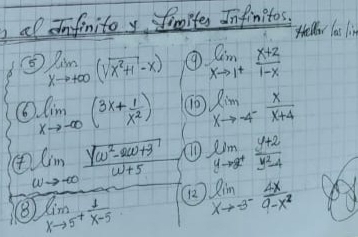 s al Infinito y Límites Infinitos.
Hallar las lim
⑤ lim x→+∞ (√(x²+1) - x)
⑥ lim x→-∞ (3x + 1/x²)
⑦ lim ω→-∞ √(ω²-2ω+3) / (ω+5)
⑧ lim x→5⁺ 1/(x-5)
⑨ lim x→1⁺ (x+2)/(1-x)
⑩ lim x→-4⁻ x/(x+4)
⑪ lim y→2⁺ (y+2)/(y²-4)
⑫ lim x→-3⁻ 4x/(9-x²)